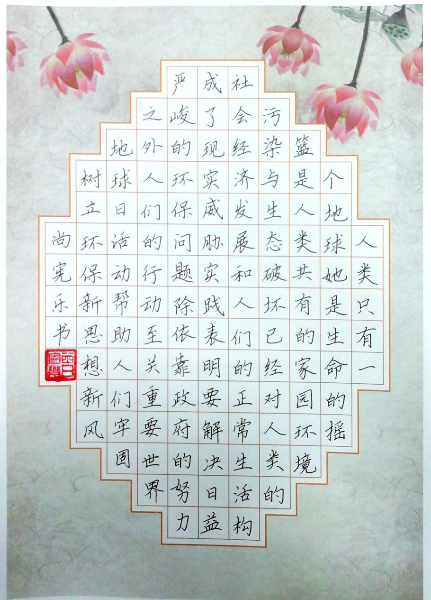 人类只有一
个地球她是生命的摇
篮是人类共有的家园环境
污染与生态破坏已经对人类的
社会经济发展和人们的正常生活构
成了现实威胁实践表明要解决日益
严峻的环保问题除依靠政府的努力
之外人们的行动至关重要世界
地球日活动帮助人们牢固
树立环保新思想新风
尚宪乐书